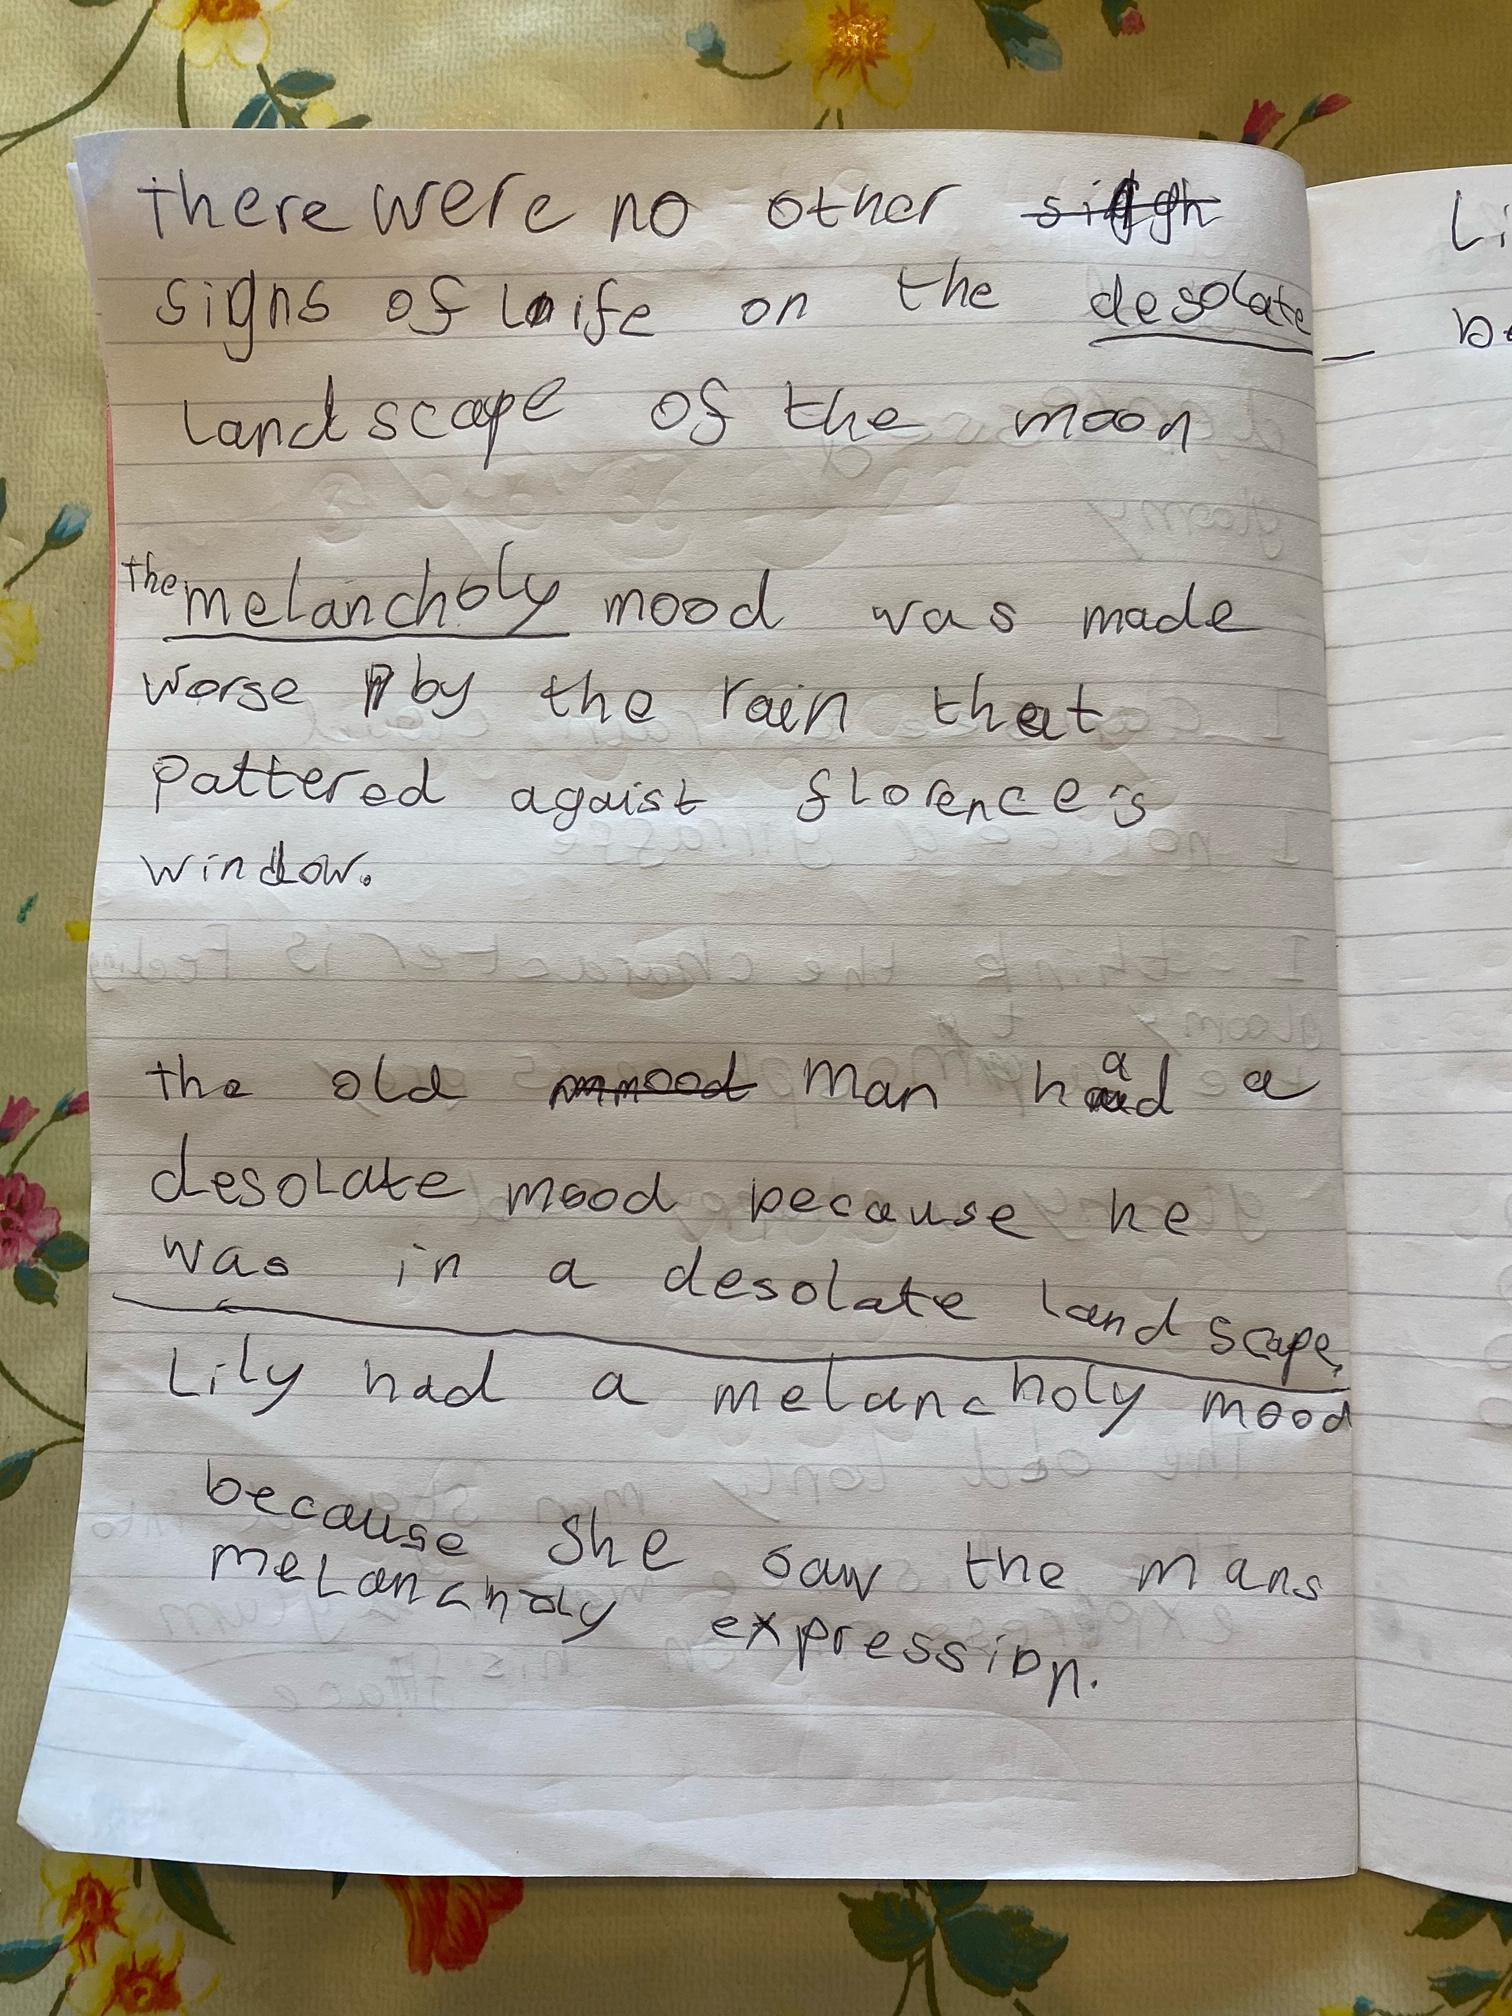 there were no other
signs of life on the desolate
landscape of the moon
the melancholy mood was made
worse by the rain that
pattered agaist florence's
window.
the old man had a
desolate mood because he
was in a desolate landscape,
Lily had a melancholy mood
because she saw the mans
melancholy expression.
Li
be